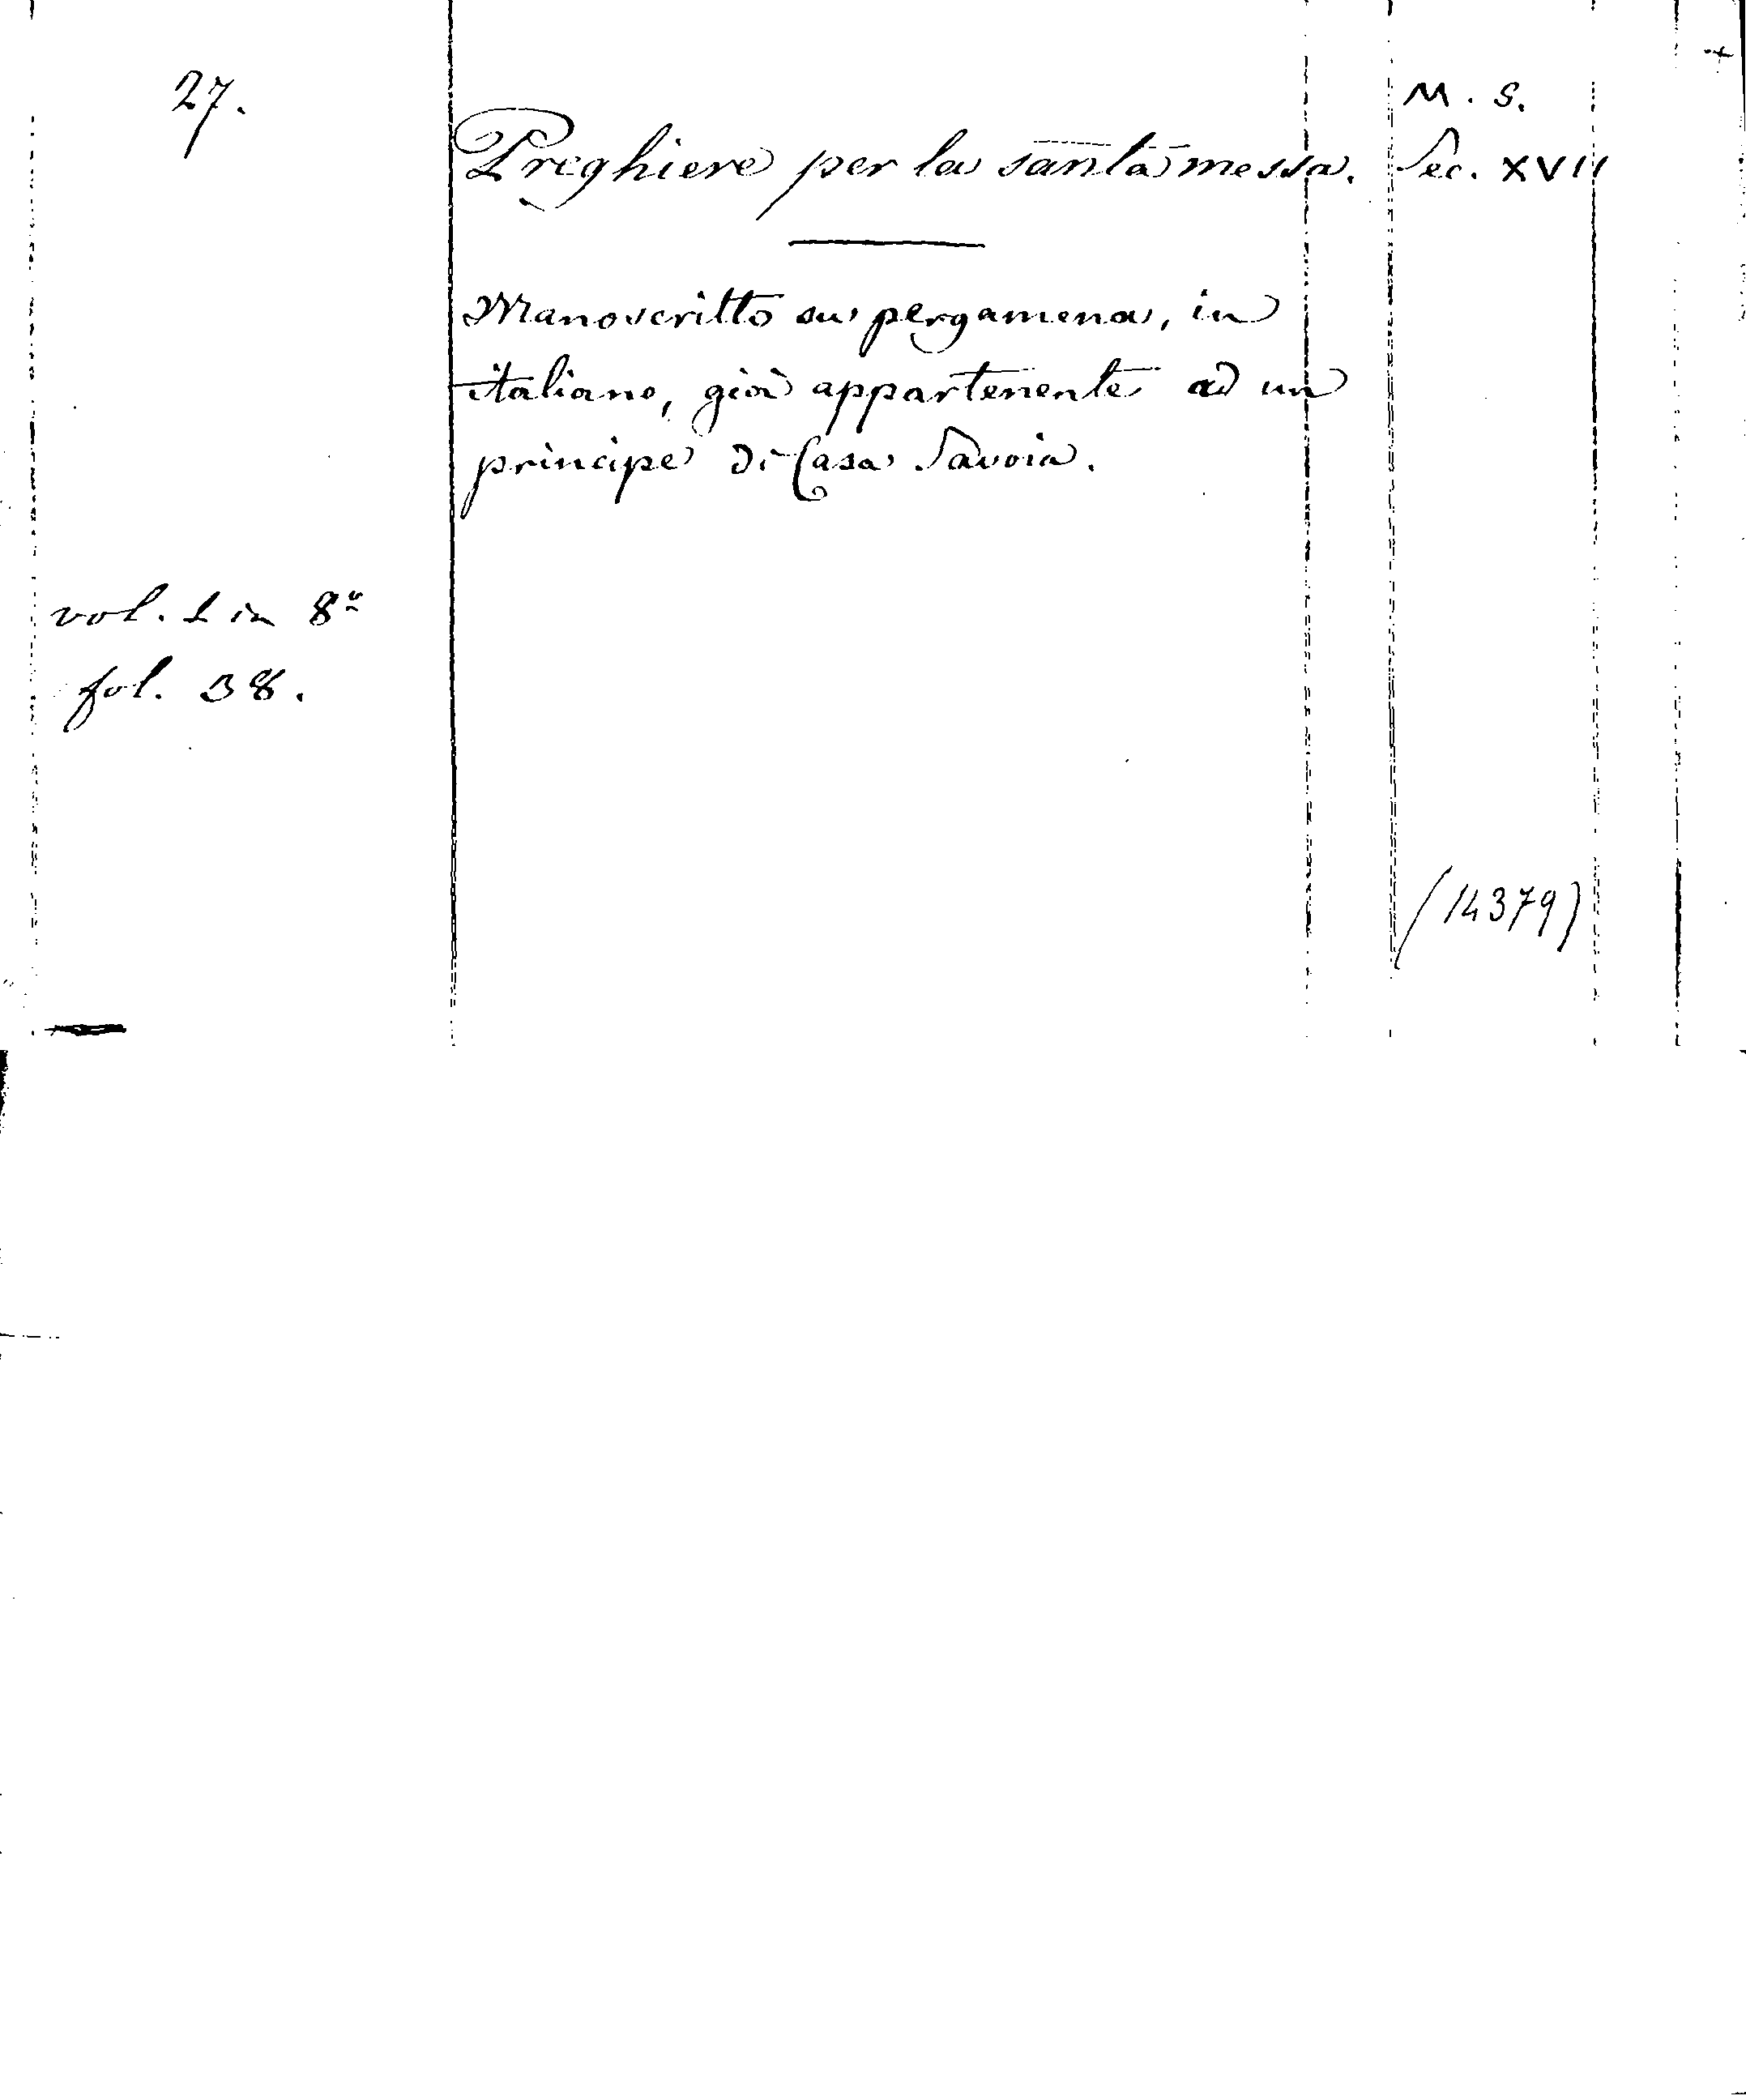 27.
M. S.
Preghiere per la santa messa. Sec. XVII
Manoscritto su pergamena, in
italiano, già appartenente ad un
principe di Casa Savoia.
vol. 1 in 8°
fol. 38.
(14379)